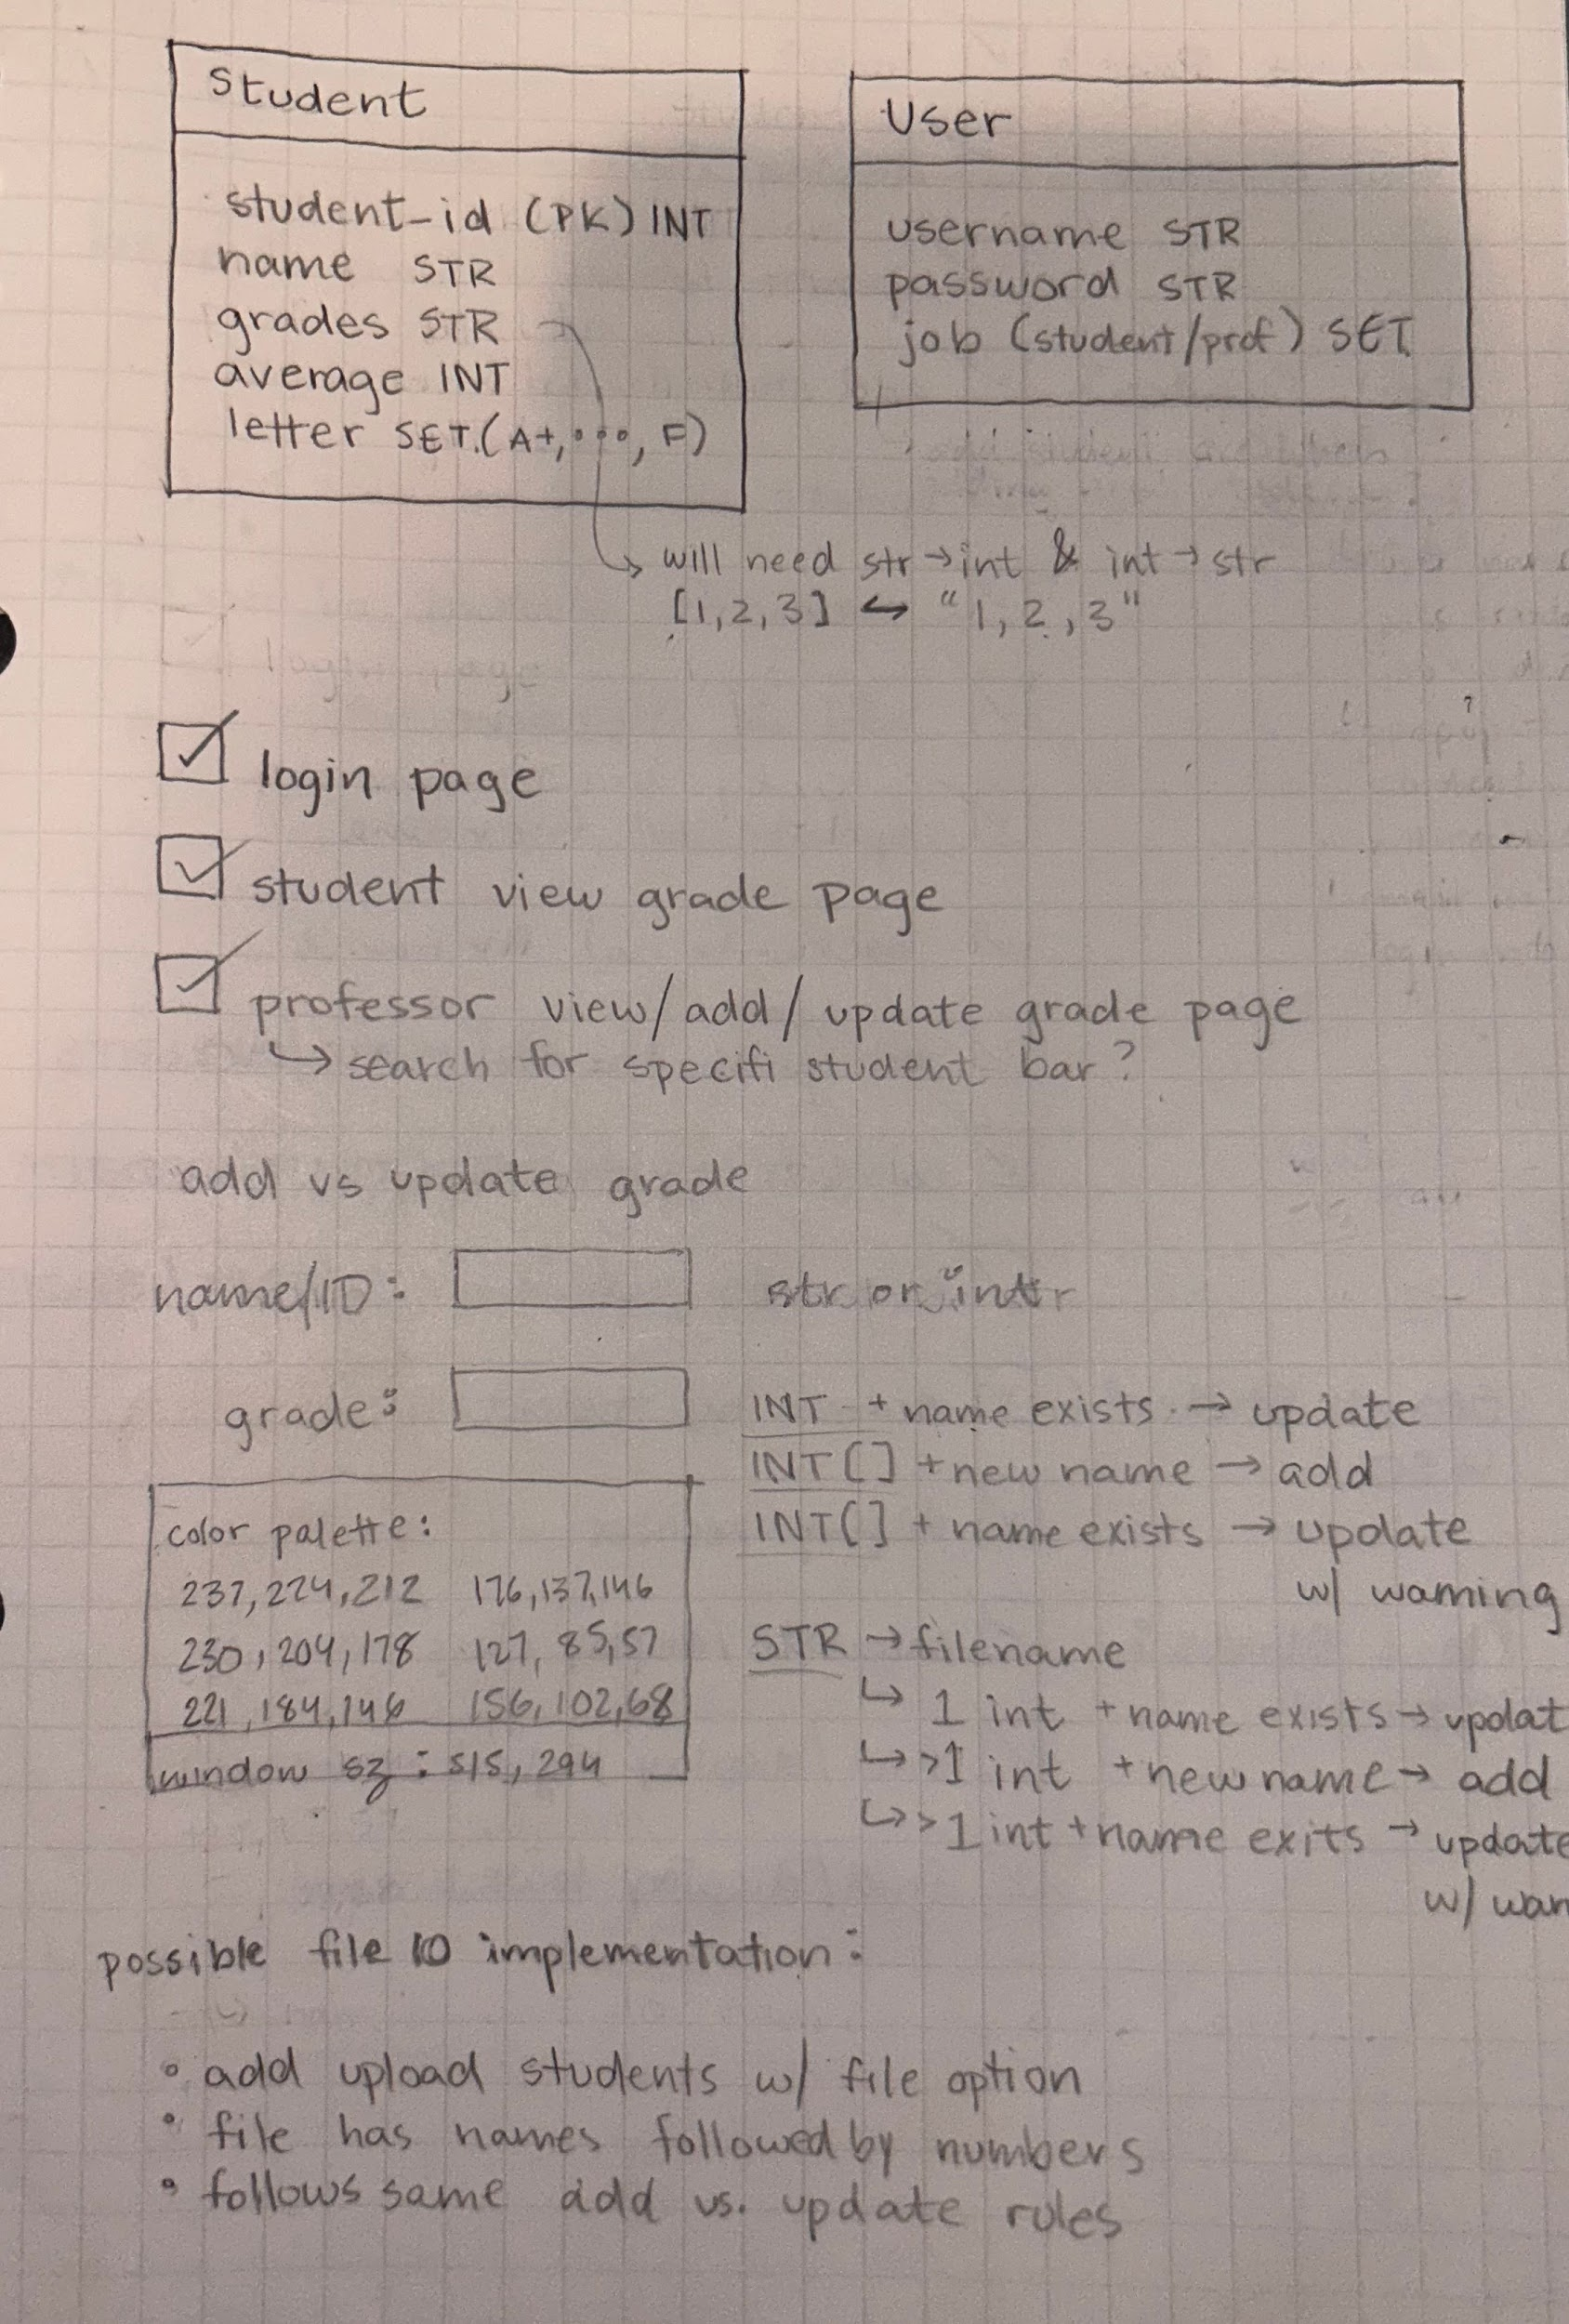 Student
student-id (PK) INT
name STR
grades STR
average INT
letter SET.(A+,..., F)
User
username STR
password STR
job (student/prof) SET
will need str→int & int→str
[1,2,3] ↔ "1,2,3"
login page
student view grade page
professor view/add/update grade page
↳ search for specifi student bar?
add vs update grade
name/ID: str or int
grade:
INT + name exists → update
INT[] + new name → add
INT[] + name exists → update
w/ warning
STR → filename
↳ 1 int + name exists → updat
↳ >1 int + new name → add
↳ >1 int + name exits → update
w/ war
color palette:
237,224,212 176,137,146
230,204,178 127, 85,57
221,184,146 156,102,68
window sz: 515, 294
possible file IO implementation:
• add upload students w/ file option
• file has names followed by numbers
• follows same add vs. update rules